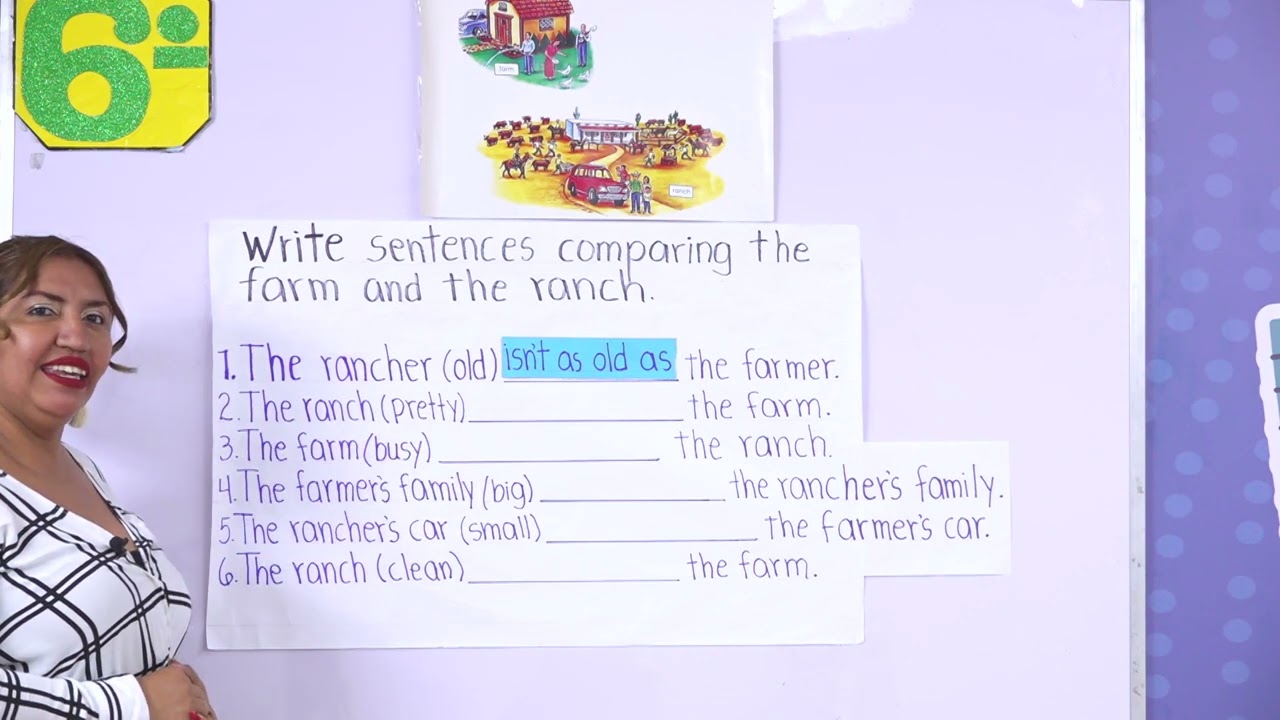 6º
farm
ranch
Write sentences comparing the
farm and the ranch.
1. The rancher (old) isn't as old as the farmer.
2. The ranch (pretty)____________ the farm.
3. The farm (busy) ____________ the ranch.
4. The farmer's family (big)____________ the rancher's family.
5. The rancher's car (small)____________ the farmer's car.
6. The ranch (clean)____________ the farm.